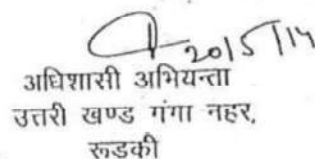 20/5/14
अधिशासी अभियन्ता
उत्तरी खण्ड गंगा नहर,
रूडकी